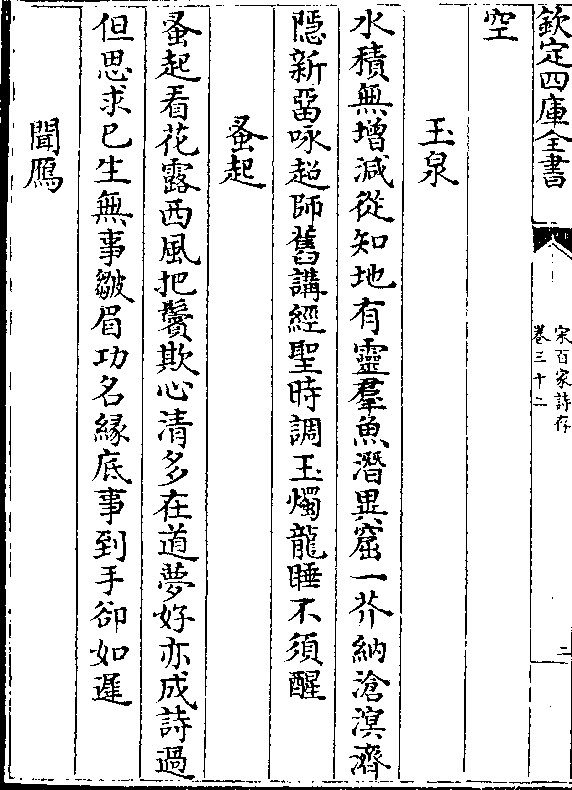 欽定四庫全書
宋百家詩存
卷三十二
二
空
玉泉
水積無增減從知地有靈羣魚潛異窟一芥納滄溟濟
隱新留咏超師舊講經聖時調玉燭龍睡不須醒
蚤起
蚤起看花露西風把鬢欺心清多在道夢好亦成詩過
但思求已生無事皺眉功名緣底事到手卻如遲
聞鴈